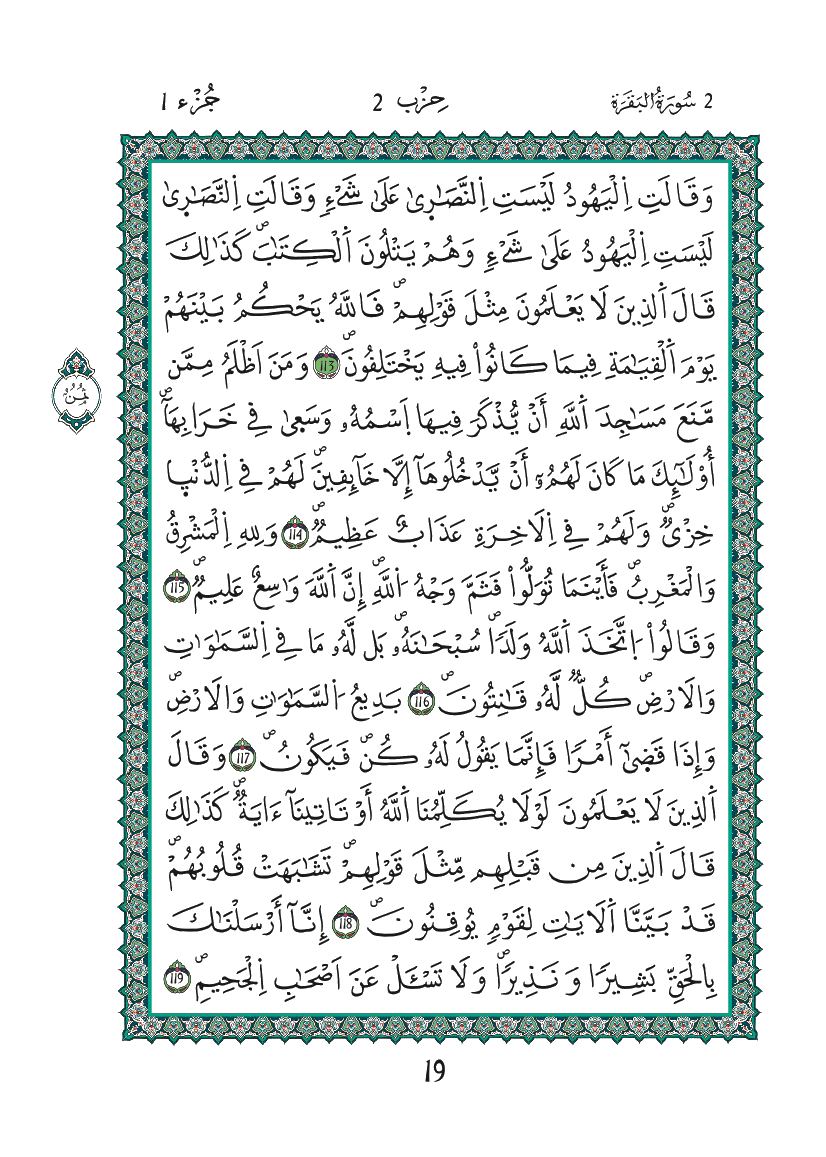 2 سُورَةُ الْبَقَرَة حِزْب 2 جُزْء 1
وَقَالَتِ اِ۬لْيَهُودُ لَيْسَتِ اِ۬لنَّصَٰر۪ىٰ عَلَىٰ شَےْءٖ وَقَالَتِ اِ۬لنَّصَٰر۪ىٰ
لَيْسَتِ اِ۬لْيَهُودُ عَلَىٰ شَےْءٖ وَهُمْ يَتْلُونَ اَ۬لْكِتَٰبَۖ كَذَٰلِكَ
قَالَ اَ۬لذِينَ لَا يَعْلَمُونَ مِثْلَ قَوْلِهِمْۖ فَاللَّهُ يَحْكُمُ بَيْنَهُمْ
يَوْمَ اَ۬لْقِيَٰمَةِ فِيمَا كَانُوا۟ فِيهِ يَخْتَلِفُونَۖ 113 وَمَنَ اَظْلَمُ مِمَّن
ثُمُنُ
مَّنَعَ مَسَٰجِدَ اَ۬للَّهِ أَنْ يُّذْكَرَ فِيهَا اَ۪سْمُهُۥ وَسَع۪ىٰ فِے خَرَابِهَآۖ
أُوْلَٰٓئِكَ مَا كَانَ لَهُمُۥٓ أَنْ يَّدْخُلُوهَآ إِلَّا خَآئِفِينَۖ لَهُمْ فِے اِ۬لدُّنْي۪ا
خِزْيٞۖ وَلَهُمْ فِے اِ۬لَاخِرَةِ عَذَابٌ عَظِيمٞۖ 114 وَلِلهِ اِ۬لْمَشْرِقُ
وَالْمَغْرِبُۖ فَأَيْنَمَا تُوَلُّوا۟ فَثَمَّ وَجْهُ اُ۬للَّهِۖ إِنَّ اَ۬للَّهَ وَٰسِعٌ عَلِيمٞۖ 115
وَقَالُوا۟ اُ۪تَّخَذَ اَ۬للَّهُ وَلَداٗۖ سُبْحَٰنَهُۥۖ بَل لَّهُۥ مَا فِے اِ۬لسَّمَٰوَٰتِ
وَالَارْضِۖ كُلّٞ لَّهُۥ قَٰنِتُونَۖ 116 بَدِيعُ اُ۬لسَّمَٰوَٰتِ وَالَارْضِۖ
وَإِذَا قَض۪ىٰٓ أَمْراٗ فَإِنَّمَا يَقُولُ لَهُۥ كُنۖ فَيَكُونُۖ 117 وَقَالَ
اَ۬لذِينَ لَا يَعْلَمُونَ لَوْلَا يُكَلِّمُنَا اَ۬للَّهُ أَوْ تَاتِينَآ ءَايَةٞۖ كَذَٰلِكَ
قَالَ اَ۬لذِينَ مِن قَبْلِهِم مِّثْلَ قَوْلِهِمْۖ تَشَٰبَهَتْ قُلُوبُهُمْۖ
قَدْ بَيَّنَّا اَ۬لَايَٰتِ لِقَوْمٖ يُوقِنُونَۖ 118 إِنَّآ أَرْسَلْنَٰكَ
بِالْحَقِّ بَشِيراٗ وَنَذِيراٗۖ وَلَا تَسْـَٔلْ عَنَ اَصْحَٰبِ اِ۬لْجَحِيمِۖ 119
19